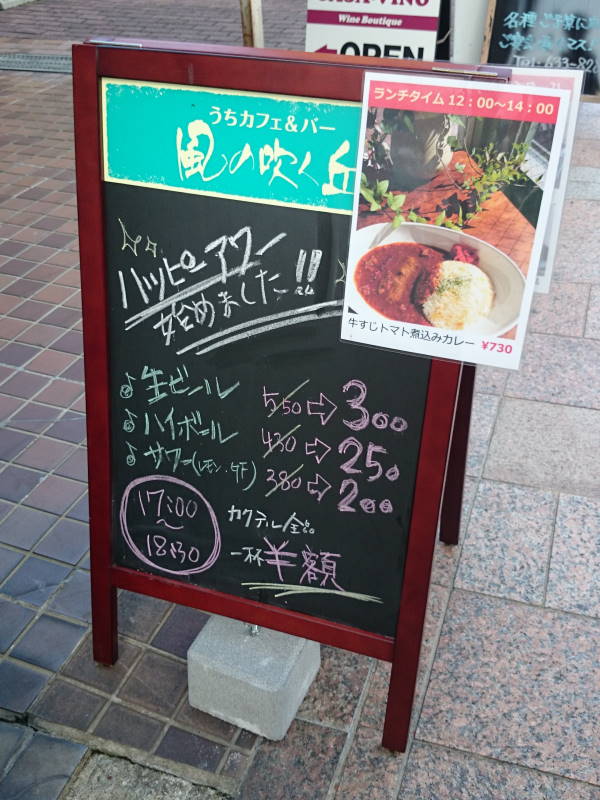 CASA-VINO
Wine Boutique
OPEN
うちカフェ&バー
風の吹く丘
ランチタイム 12:00〜14:00
牛すじトマト煮込みカレー ¥730
ハッピーアワー
始めました!!
♪生ビール 550⇨300
♪ハイボール 430⇨250
♪サワー(レモン・ 380⇨200
17:00
〜
18:30
カクテル全品
一杯半額